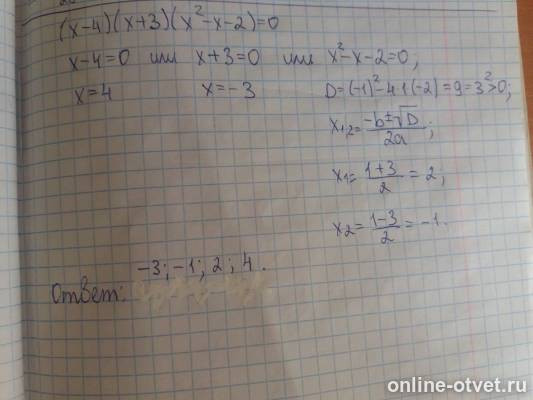 (x-4)(x+3)(x²-x-2)=0
x-4=0 или x+3=0 или x²-x-2=0;
x=4 x=-3 D=(-1)²-4·1(-2)=9=3²>0;
x₁,₂=(-b±√D)/2a;
x₁=(1+3)/2=2;
x₂=(1-3)/2=-1.
-3; -1; 2; 4.
Ответ:
online-otvet.ru